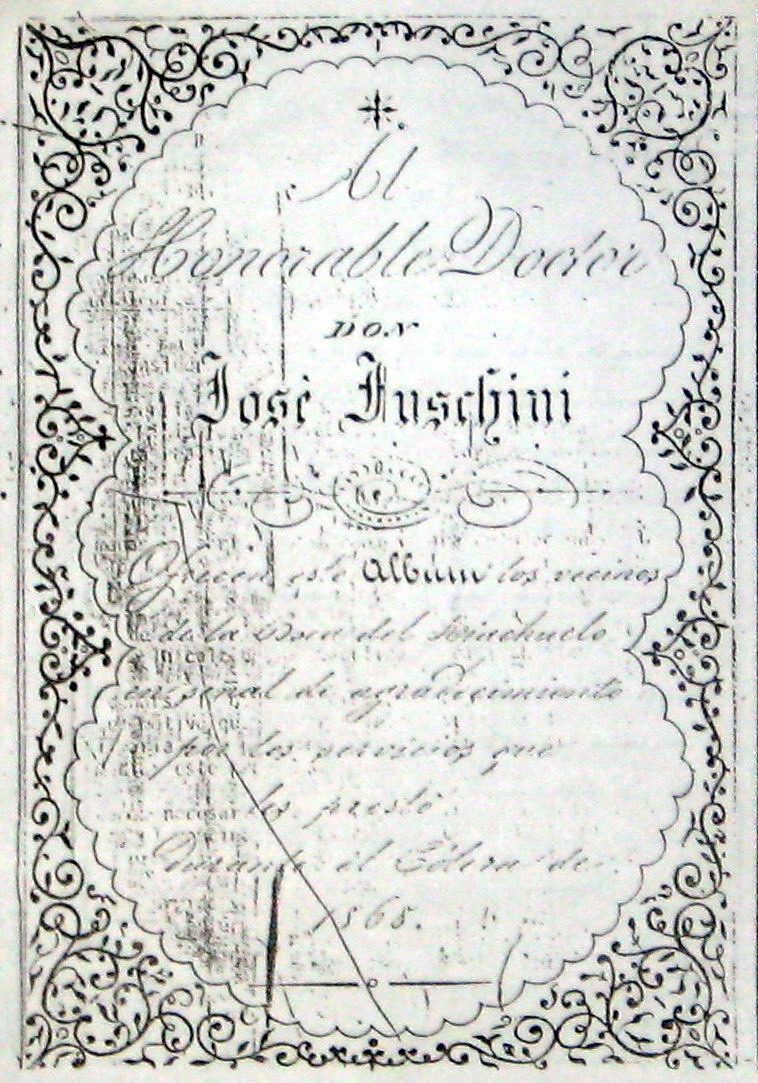 Al
Honorable Doctor
DON
José Fuschini
Ofrecen este Album los vecinos
de la Boca del Riachuelo
en señal de agradecimiento
por los servicios que
les prestó
Durante el Cólera de
1868.